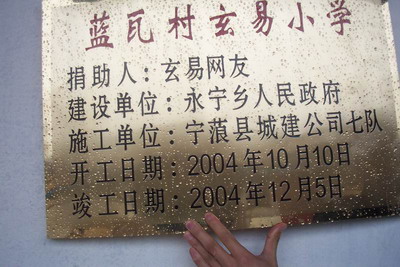 蓝瓦村玄易小学
捐助人：玄易网友
建设单位：永宁乡人民政府
施工单位：宁蒗县城建公司七队
开工日期：2004年10月10日
竣工日期：2004年12月5日